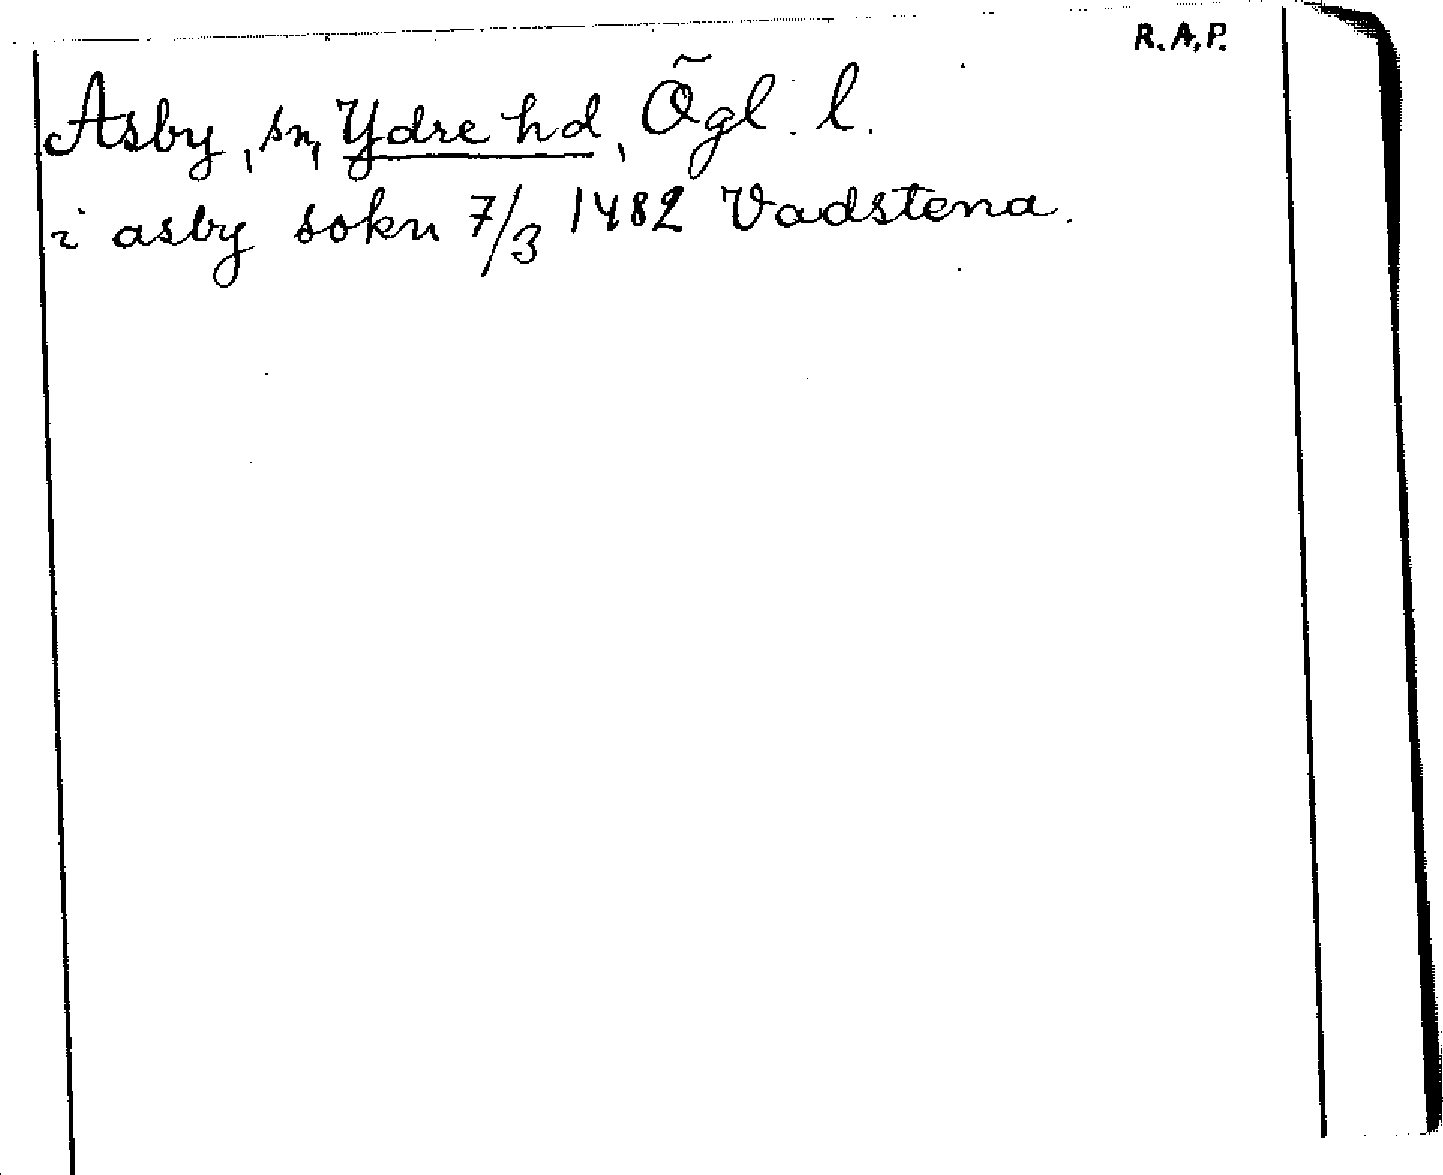 R.A.P.
Asby, sn, Ydre hd, Ögl. l.
i asby sokn 7/3 1482 Vadstena.